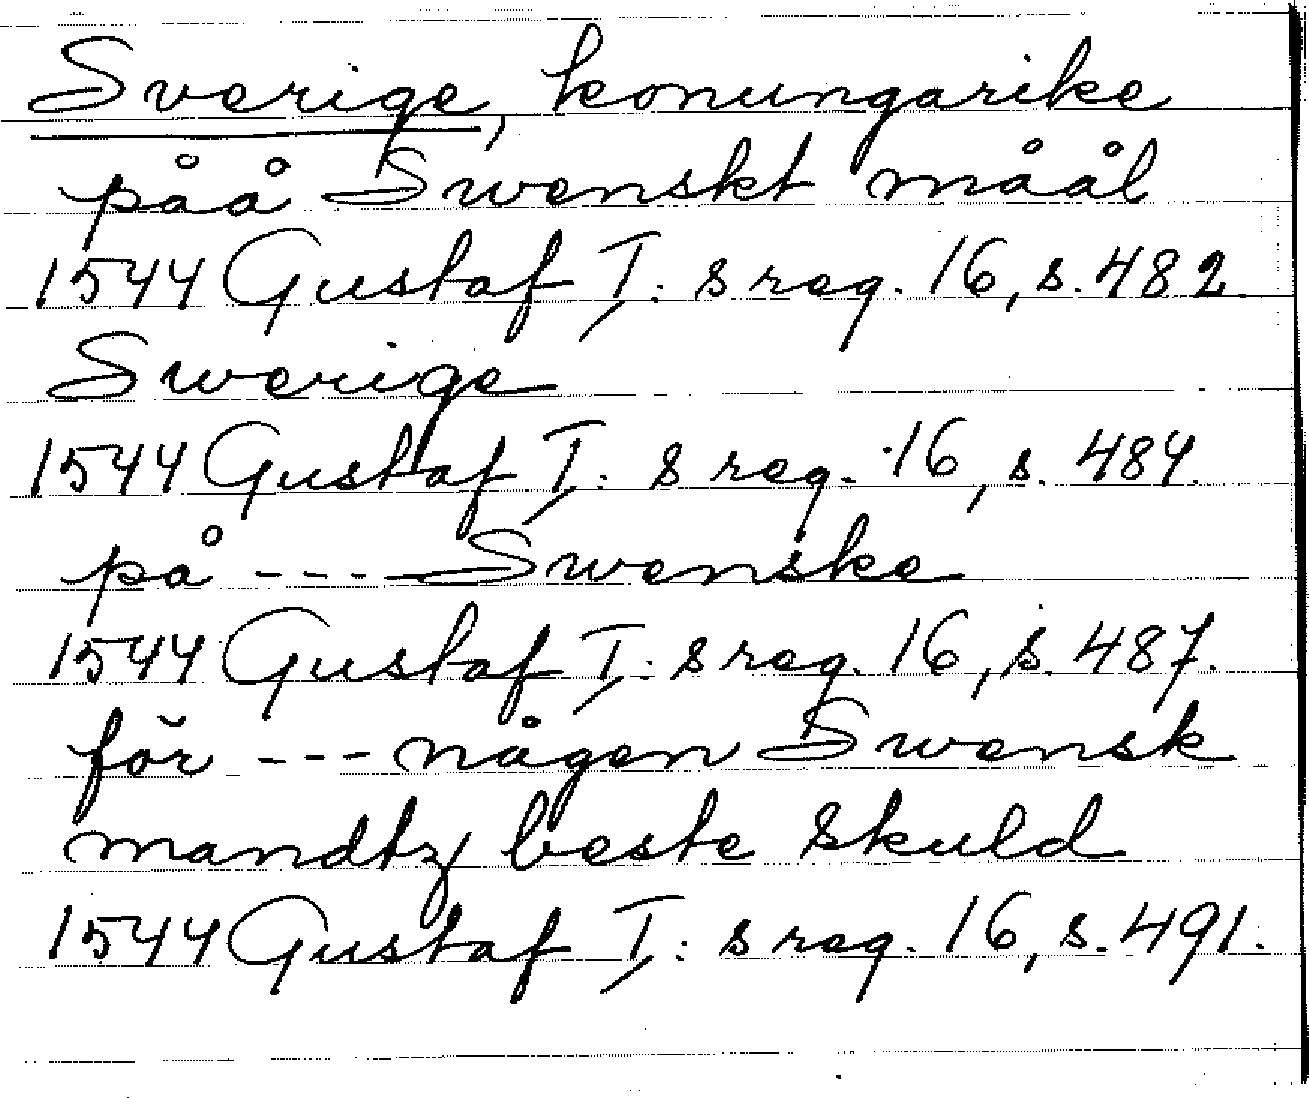 Sverige, konungarike
påå Swenskt måål
1544 Gustaf I: s reg. 16, s. 482
Swerige
1544 Gustaf I: s reg. 16, s. 484.
på --- Swenske
1544 Gustaf I: s reg. 16, s. 487.
för --- någen Swensk
mandtz beste skuld
1544 Gustaf I: s reg. 16, s. 491.